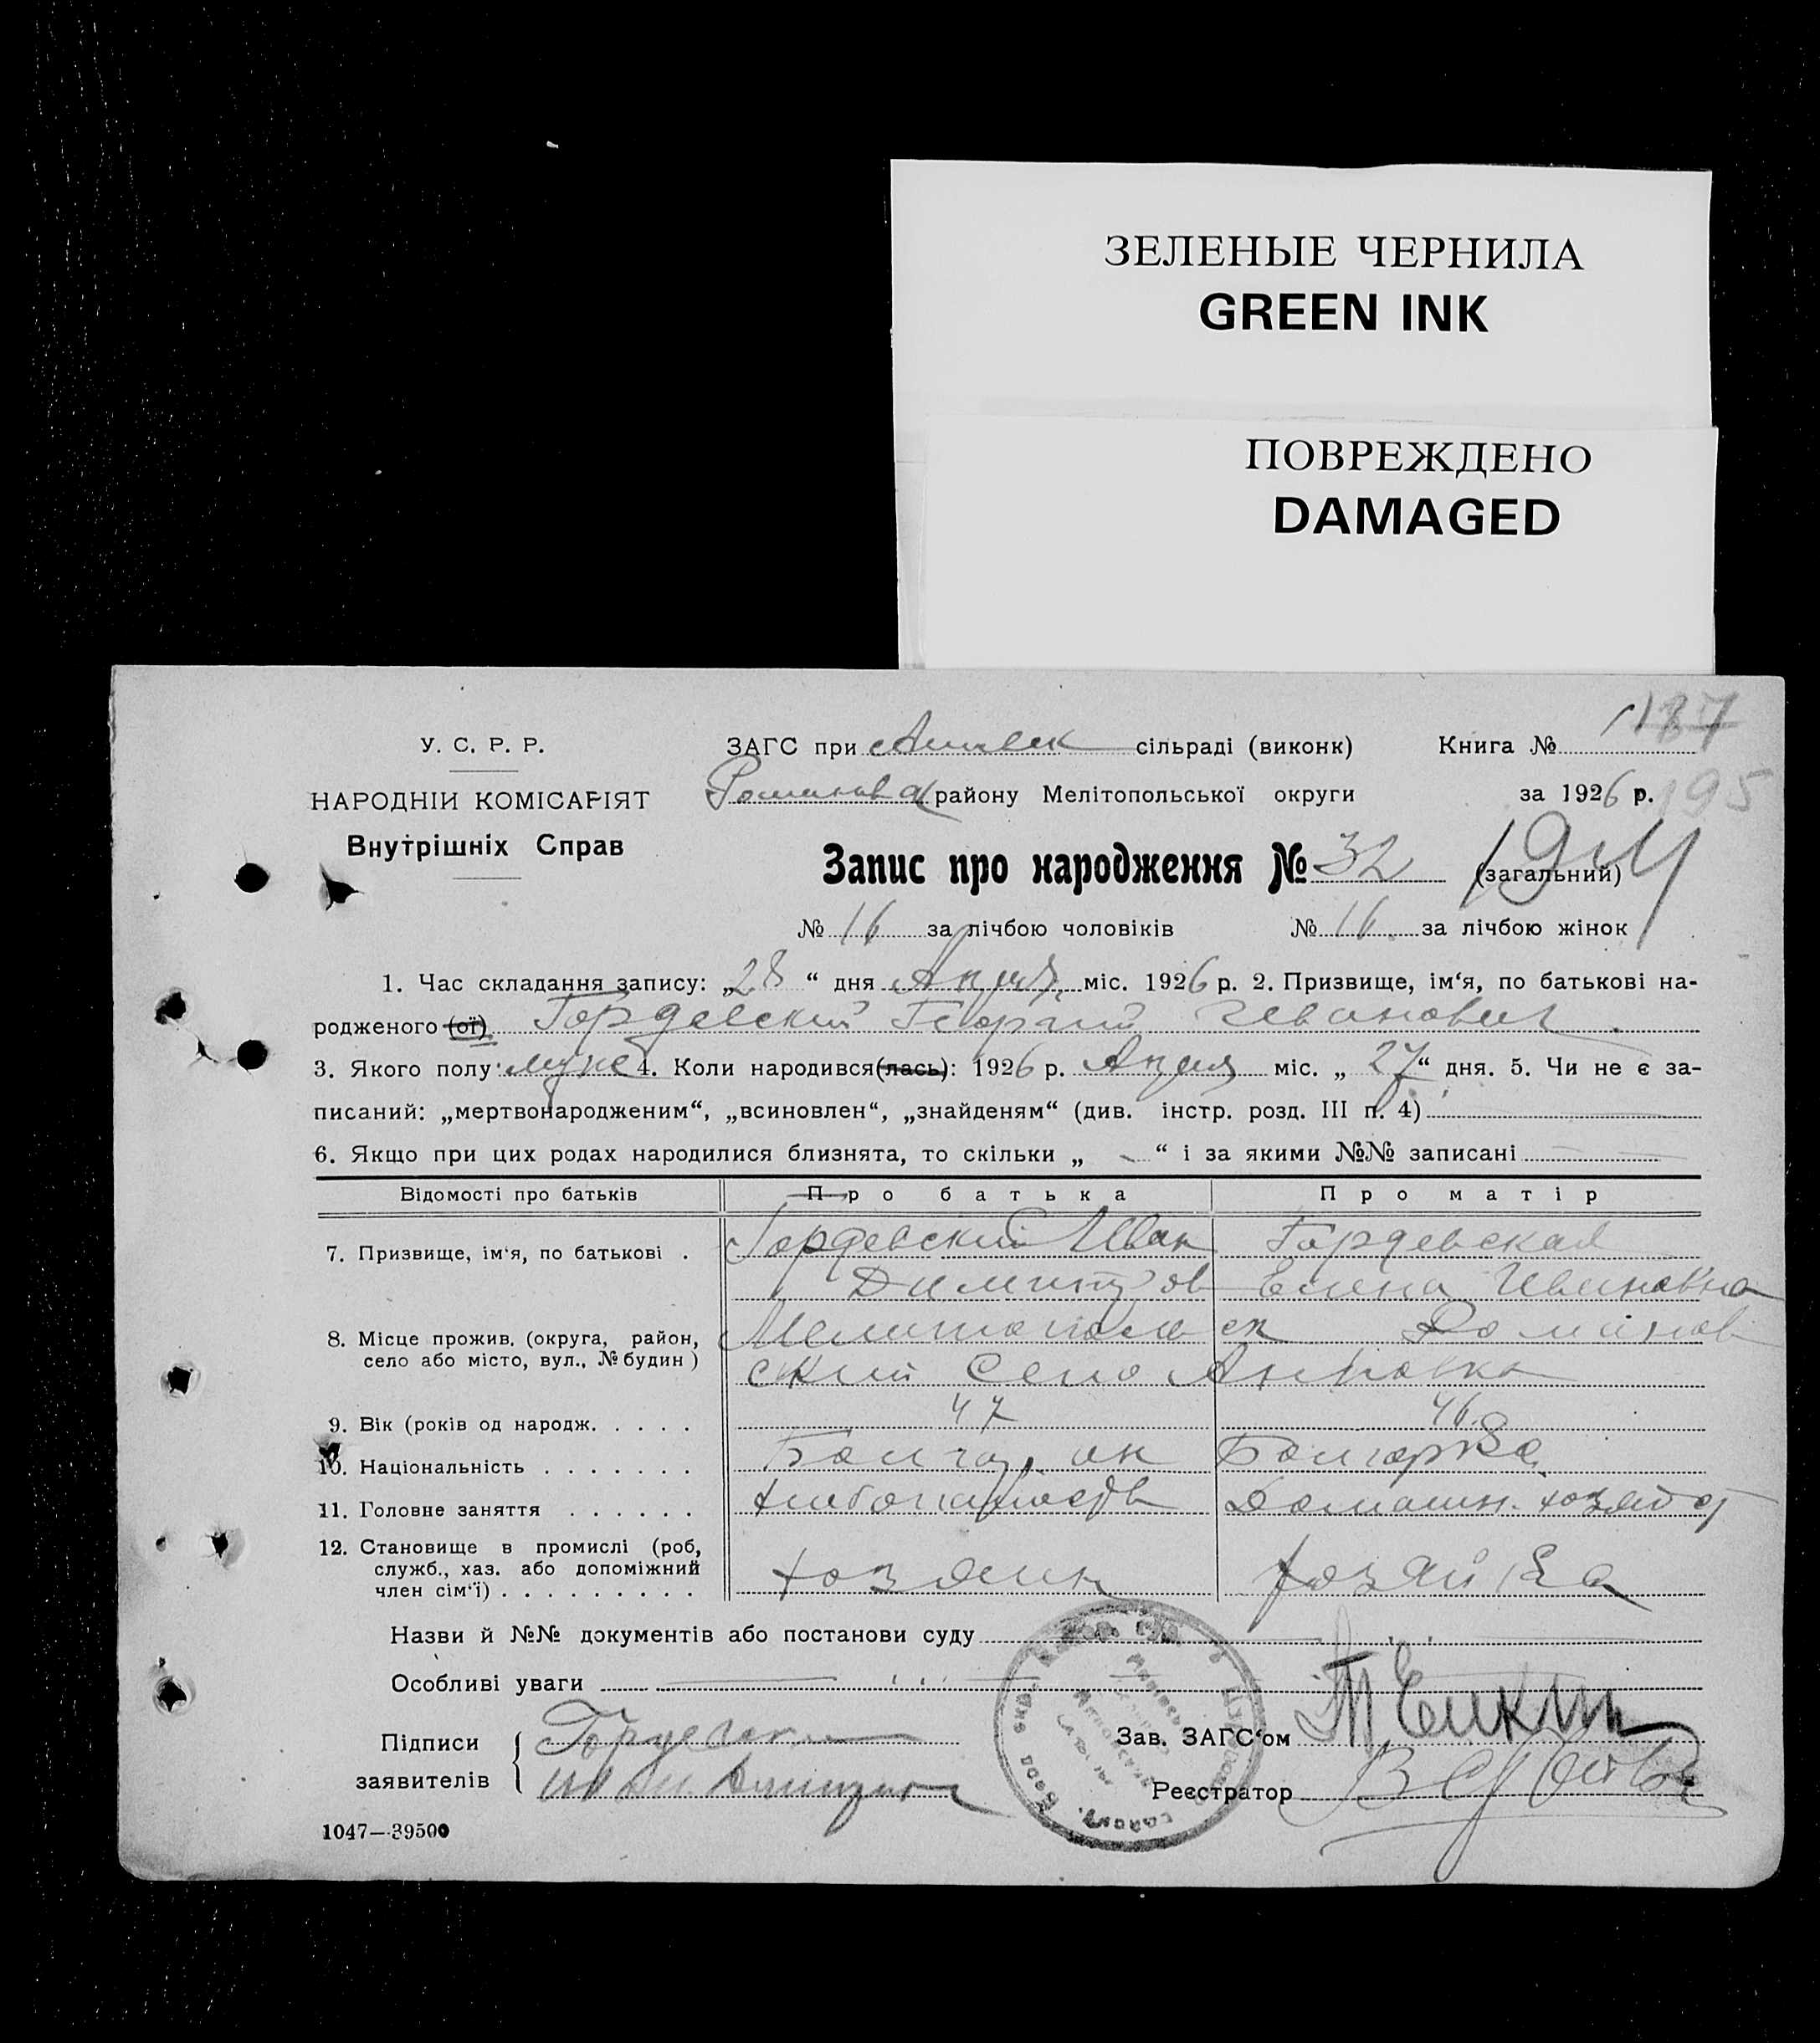 ЗЕЛЕНЫЕ ЧЕРНИЛА
GREEN INK
ПОВРЕЖДЕНО
DAMAGED
187
У. С. Р. Р.
ЗАГС при сільраді (виконк) Книга №
НАРОДНІЙ КОМІСАРІЯТ
району Мелітопольської округи за 1926 р. 195
Внутрішніх Справ
Запис про народження № 32 (загальний)
№ 16 за лічбою чоловіків № 16 за лічбою жінок
1. Час складання запису: „28“ дня Апреля міс. 1926 р. 2. Призвище, ім‘я, по батькові на-
родженого (ої) Гордевский Георгий Иванович
3. Якого полу муж 4. Коли народився (лась): 1926 р. Апреля міс. „27“ дня. 5. Чи не є за-
писаний: „мертвонародженим“, „всиновлен“, „знайденям“ (див. інстр. розд. III п. 4)
6. Якщо при цих родах народилися близнята, то скільки „ “ і за якими №№ записані
Відомості про батьків Про батька Про матір
7. Призвище, ім‘я, по батькові . Гордевский Иван Гордевская
Димитров Елена Ивановна
8. Місце прожив. (округа, район, Мелитопольск Романов
село або місто, вул., № будин) ский село
9. Вік (років од народж. . . . . 47 46
10. Національність . . . . . . . Болгарин Болгарка
11. Головне заняття . . . . . . хлебопашеств Домашн. хозяйст
12. Становище в промислі (роб,
служб., хаз. або допоміжний
член сім‘ї) . . . . . . . . . хозяин хозяйка
Назви й №№ документів або постанови суду
Особливі уваги
Підписи
заявителів
Зав. ЗАГС‘ом
Реєстратор
1047—39500